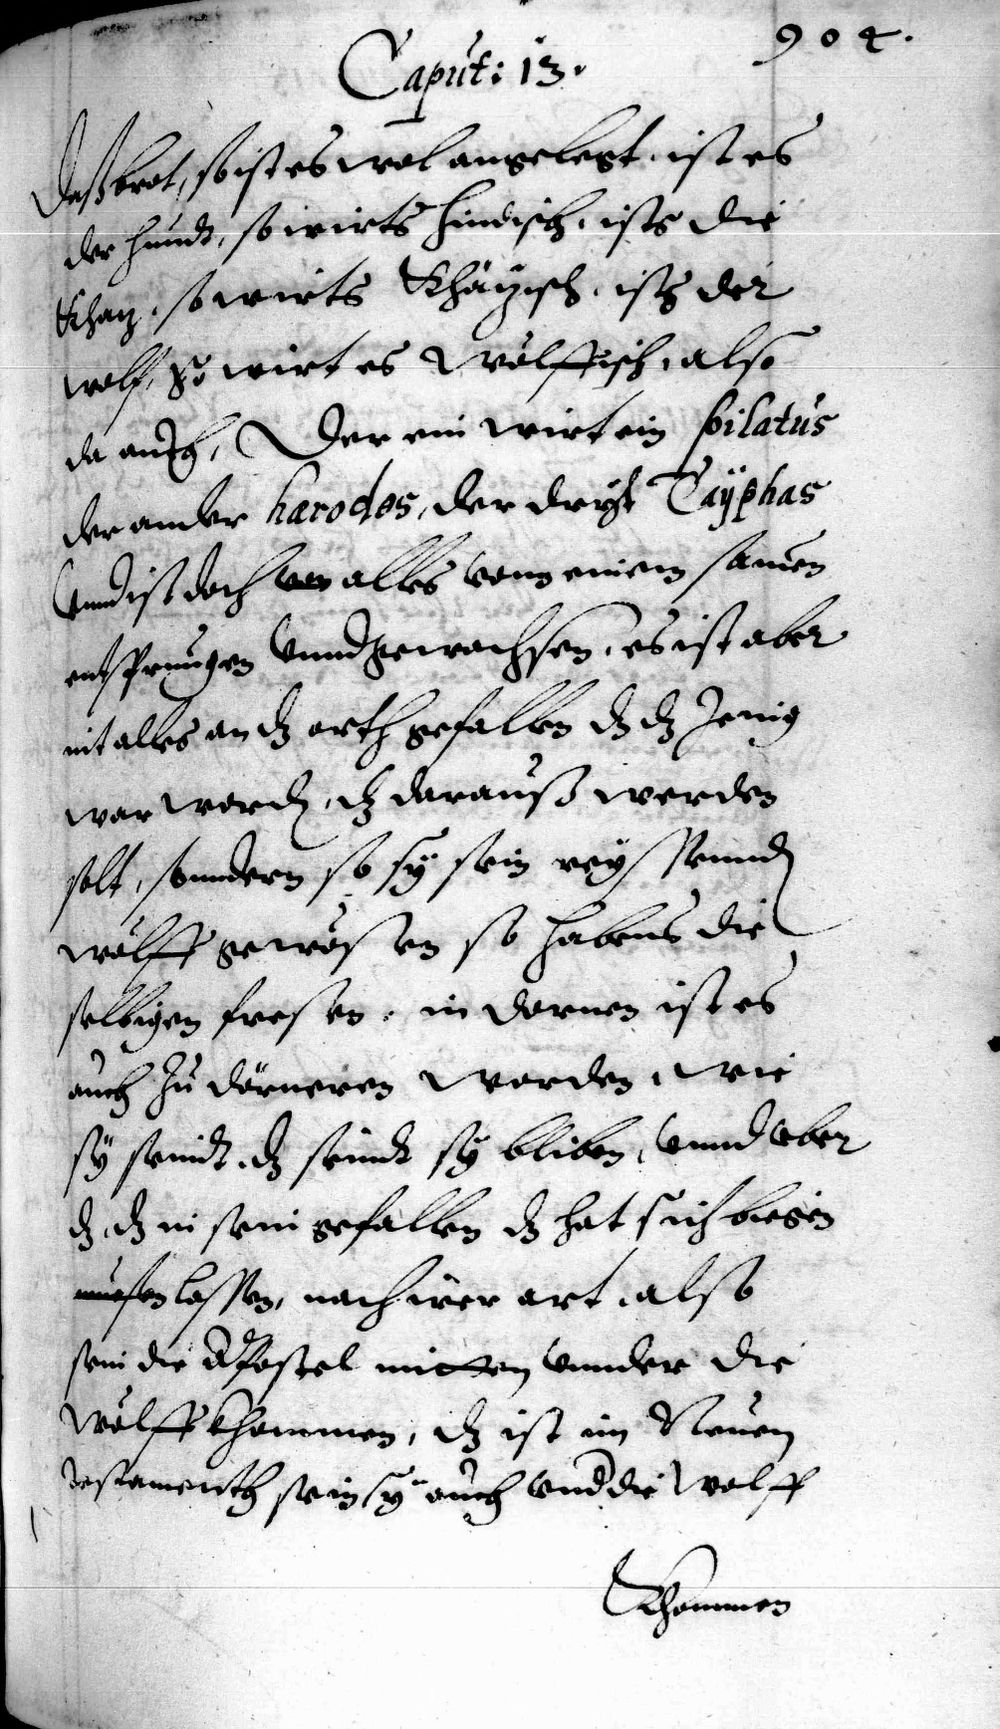 904.
Caput: 13.
deß brot, so ist es wol angelegt. ist es
der hundt, so wirts hindisch. ists die
Khaz. so wirts Khäzisch. ists der
wolf, so wirt es Wölffisch, also
da auch, Der ein wirt ein pilatus
der ander harodes, der dryt Cayphas
Vnnd ist doch alles vonn einem samen
entsprungen Vnnd gewachsen. es ist aber
nit alles an dz orth gefallen dz dz Jenig
war worden, dz darauß werden
solt, sonndern so sÿ sein reyssennd
wölff gewösen so habens die
selbigen fressen. in dornen ist es
auch Zu dörneren worden, wie
sÿ seindt. dz seindt sÿ bliben, vnnd aber
dz, dz in sein gefallen dz hat sich biegen
lassen, nach irer art. also
sein die Apostel mitten vnnder die
Wölff khommen, dz ist im Neuen
testamenth sein sÿ auch vnd die Wolff
Khommen